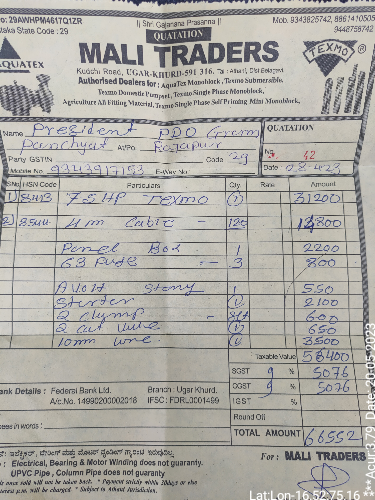 No: 29AWHPM4617Q1ZR
|| Shri. Gajanana Prasanna ||
Mob. 9343825742, 8861410505
nataka State Code : 29
QUATATION
9448758742
MALI TRADERS
AQUATEX
TEXMO
Kudchi Road, UGAR-KHURD-591 316. Tal : Athani, Dist Belagavi
Authorised Dealers for : AquaTex Monoblock, Texmo Submersible,
Texmo Domestic Pumpset, Texmo Single Phase Monoblock,
Agriculture All Fitting Material, Texmo Single Phase Self Priming Mini Monoblock,
Name President PDO Gram
Panchyat At/Po.
QUATATION
Party GSTIN
Code 29
No. 42
Mobile No. E-Way No.
Date
SNo. HSN Code Particulars Qty. Rate Amount
1) 7.5 HP Texmo 1 31200
2) 4mm Cable 120
Panel Box 1 2200
63 Fuse 3 800
1 550
Starter 1 2100
600
650
10mm wire 3500
Taxable Value 58400
SGST 9 % 5076
CGST 9 % 5076
Bank Details : Federal Bank Ltd. Branch : Ugar Khurd.
IGST %
A/c.No. 14990200002018 IFSC : FDRL0001499
Round Off
pees in words :
TOTAL AMOUNT 66552
: Electrical, Bearing & Motor Winding does not guaranty.
For : MALI TRADERS
UPVC Pipe , Column Pipe does not guaranty.
ce once sold will not be taken back. * Payment strictly within 30days or else
interest p.m. will be charged * Subject to Athani Jurisdiction.
Lat:Lon-16.52:75.16
**Acu:3.79 Date:20:05:2023